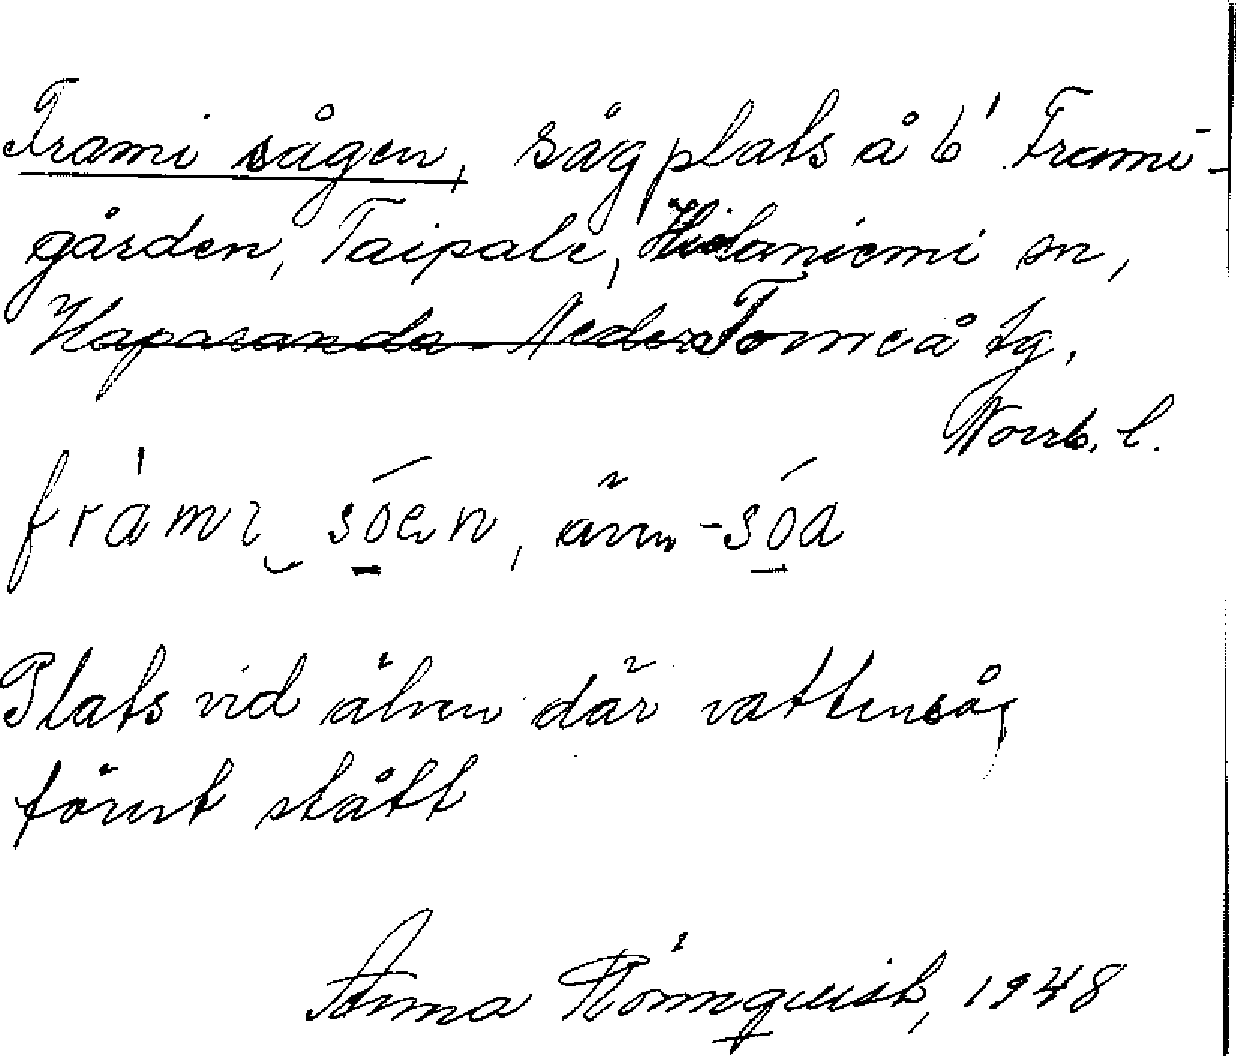 Frami sågen, såg plats å b' Frami-
gården, Taipale, Hietaniemi sn,
Haparanda - Neder Torneå tg.
Norrb. l.
frámi sóen, även -sóa
Plats vid älven där vattensåg
förut stått
Anna Rönnquist, 1948